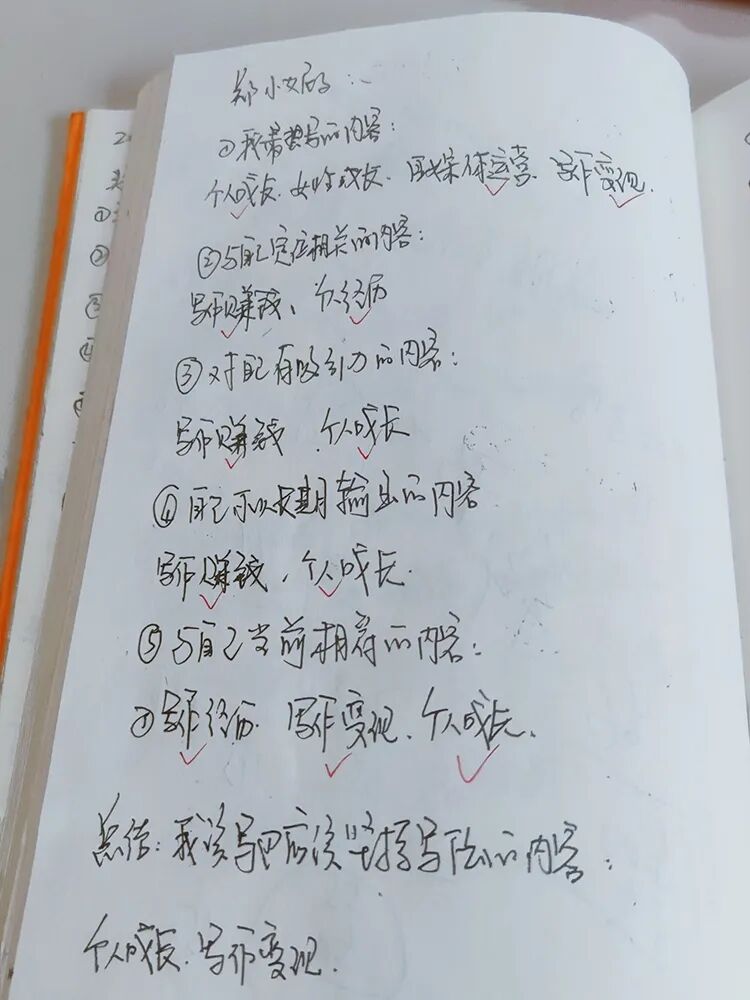 郑小女的:
①我需要写的内容:
个人成长. 女性成长. 自媒体运营. 写作变现.
②与自己定位相关的内容:
写作赚钱、个人经历
③对自己有吸引力的内容:
写作赚钱、个人成长
④自己可以长期输出的内容
写作赚钱、个人成长.
⑤与自己当前相符的内容:
写作经历. 写作变现、个人成长、
总结: 我该写的应该坚持写下去的内容:
个人成长. 写作变现.
2
①
②
③
④